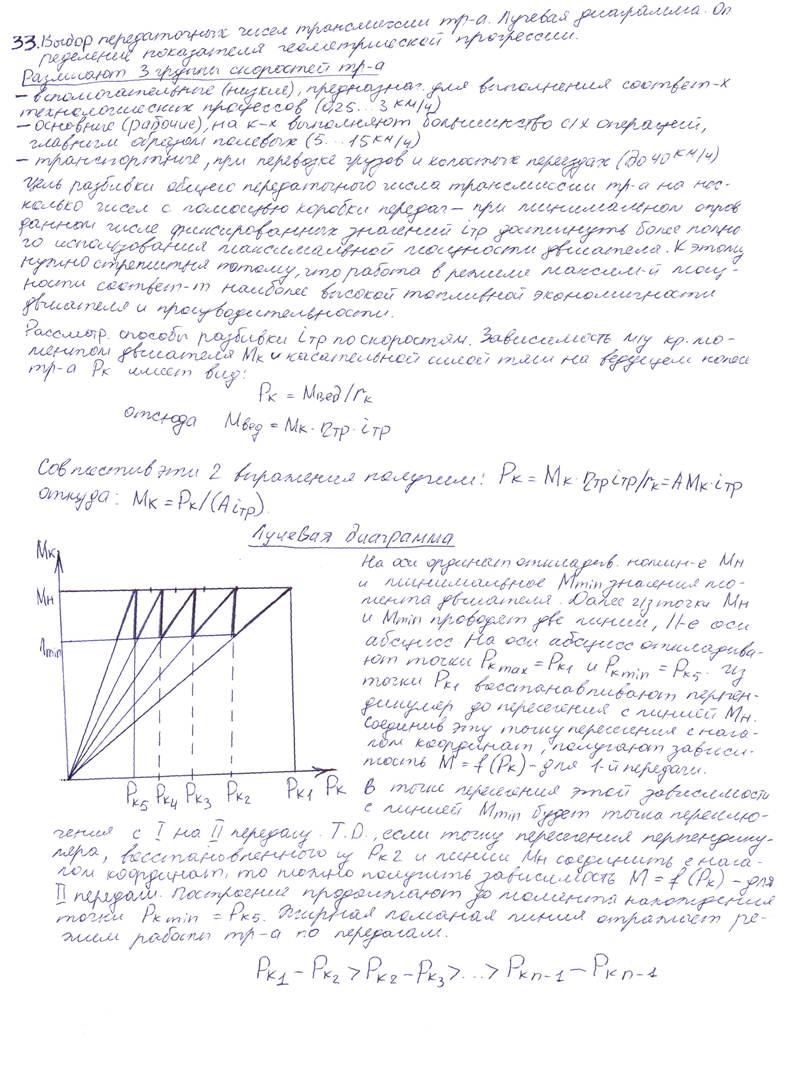 33. Выбор передаточных чисел трансмиссии тр-а. Лучевая диаграмма. Оп
ределение показателя геометрической прогрессии.
Различают 3 группы скоростей тр-а
– вспомогательные (низкие), предназнач. для выполнения соответ-х
технологических процессов (0,25...3 км/ч)
– основные (рабочие), на к-х выполняют большинство с/х операций,
главным образом полевых (5...15 км/ч)
– транспортные, при перевозке грузов и холостых переездах (до 40 км/ч)
Цель разбивки общего передаточного числа трансмиссии тр-а на нес-
колько чисел с помощью коробки передач – при минимальном опред
данном числе фиксированных значений iтр достигнуть более полно-
го использования максимальной мощности двигателя. К этому
нужно стремиться потому, что работа в режиме максим-й мощ-
ности соответ-т наиболее высокой топливной экономичности
двигателя и производительности.
Рассмотр. способы разбивки iтр по скоростям. Зависимость м/у кр. мо-
ментом двигателя Мк и касательной силой тяги на ведущем колесе
тр-а Рк имеет вид:
Рк = Мвед/rк
отсюда Мвед = Мк · ηтр · iтр
Совместив эти 2 выражения получим: Рк = Мк · ηтр iтр/rк = АМк · iтр
откуда: Мк = Рк/(А iтр).
Лучевая диаграмма
Мк
Мн
Мmin
Рк5 Рк4 Рк3 Рк2 Рк1 Рк
На оси ординат откладыв. номин-е Мн
и минимальное Мmin значения мо-
мента двигателя. Далее ч/з точки Мн
и Мmin проводят две линии, //-е оси
абсцисс. На оси абсцисс откладыва-
ют точки Ркmax = Рк1 и Ркmin = Рк5. Из
точки Рк1 восстанавливают перпен-
дикуляр до пересечения с линией Мн.
Соединив эту точку пересечения с нача-
лом координат, получают зависи-
мость М = f(Рк) – для 1-й передачи.
В точке пересечения этой зависимости
с линией Мmin будет точка переклю-
чения с I на II передачу. Т.О., если точку пересечения перпендику-
ляра, восстановленного из Рк2 и линии Мн соединить с нача-
лом координат, то можно получить зависимость М = f(Рк) – для
II передачи. Построение продолжают до момента нахождения
точки Ркmin = Рк5. Жирная ломаная линия отражает ре-
жим работы тр-а по передачам.
Рк1 – Рк2 > Рк2 – Рк3 > ... > Ркn-1 – Ркn-1